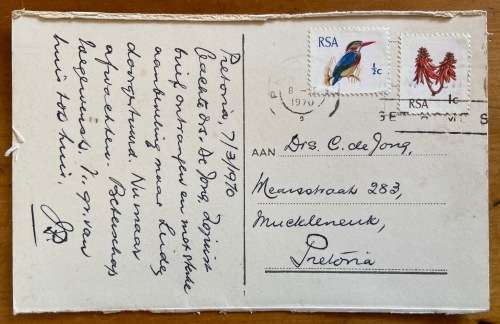 Pretoria, 7/3/1970
Geachte ds. De Jong, Zojuist
brief ontvangen en met sterke
aanbeveling naar Leiden
doorgestuurd. Nu maar
afwachten. Beterschap
toegewenst. Ir. gr. van
huis tot huis.
RSA
½c
RSA 1c
8
1970
AAN Drs. C. de Jong,
Mearsstraat 283,
Muckleneuk,
Pretoria